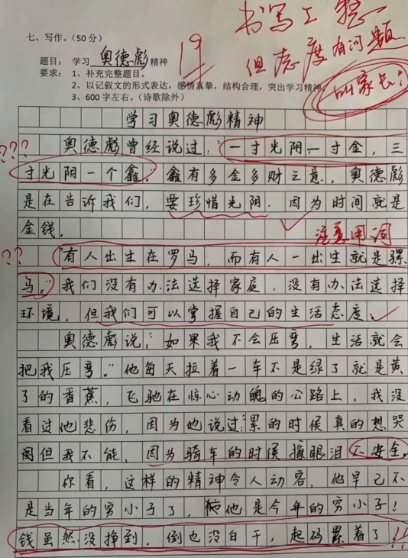 书写工整
但态度有问题
叫家长!
19
七、写作。(50分)
题目: 学习 奥德彪 精神
要求: 1、补充完整题目。
2、以记叙文的形式表达,感情真挚,结构合理,突出学习精神
3、600字左右。(诗歌除外)
学习奥德彪精神
奥德彪曾经说过:一寸光阴一寸金,三
???
寸光阴一个鑫。鑫有多金多财之意,奥德彪
是在告诉我们,要珍惜光阴,因为时间就是
金钱。
注意用词
??
"有人出生在罗马,而有人一出生就是骡
马。"我们没有办法选择家庭,没有办法选择
环境,但我们可以掌握自己的生活态度。
奥德彪说:"如果我不会压弯,生活就会
把我压弯。"他每天拉着一车不是绿了就是黄
了的香蕉,飞驰在惊心动魄的公路上,我没
看过他悲伤,因为他说过:累的时候真的想哭
但我不能,因为骑车的时候擦眼泪不安全。
你看,这样的精神令人动容,他早已不
是当年的穷小子了,他是今年的穷小子!
钱虽然没挣到,倒也没白干,起码累着了!